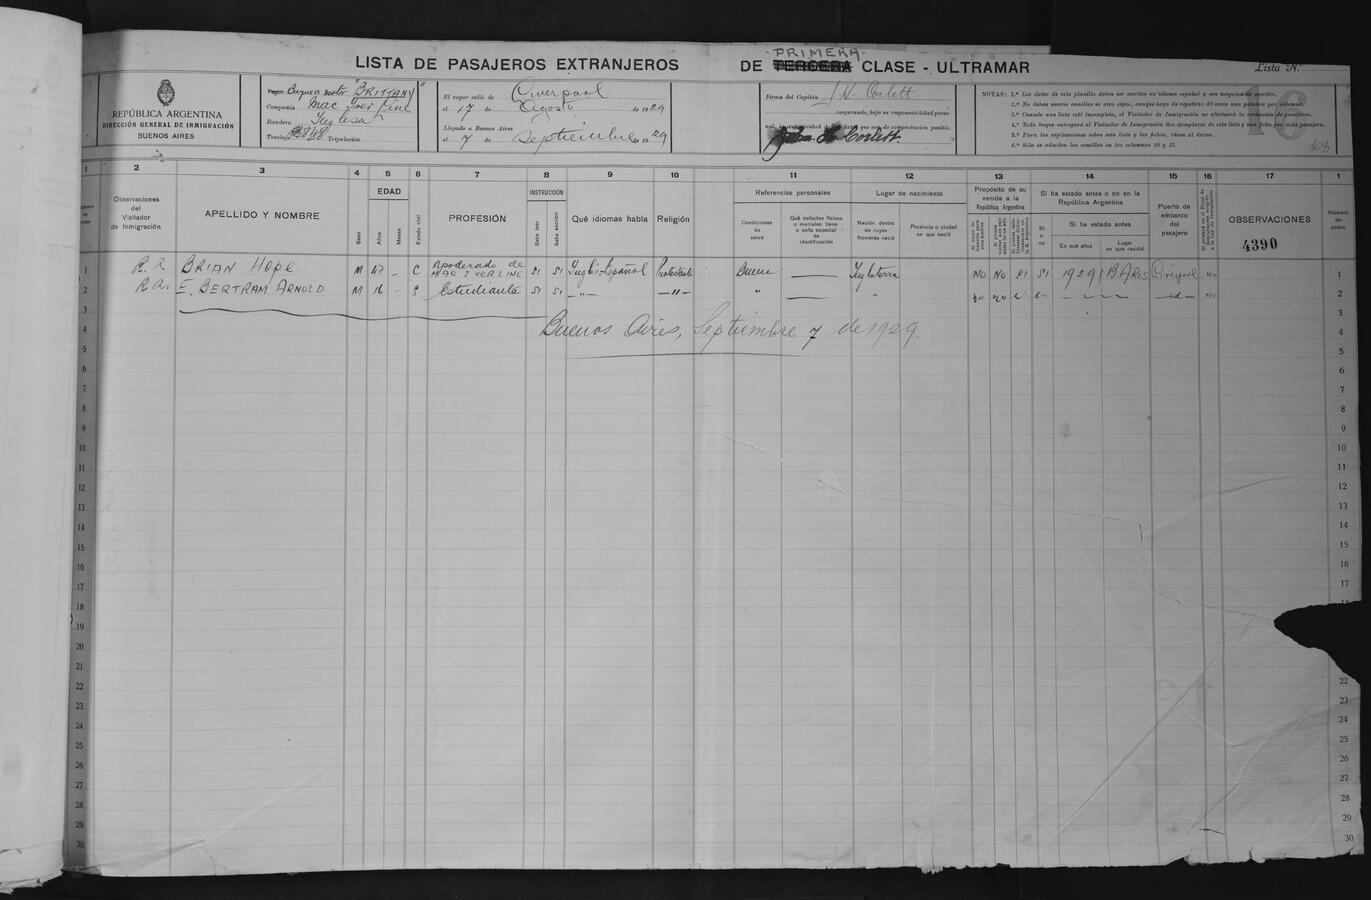 LISTA DE PASAJEROS EXTRANJEROS DE TERCERA CLASE - ULTRAMAR
- PRIMERA -
Lista N.
REPÚBLICA ARGENTINA
DIRECCIÓN GENERAL DE INMIGRACIÓN
BUENOS AIRES
Vapor Buque a motor "BRITTANY"
Compañía Mac Iver Line
Bandera Inglesa
Tonelaje 2848 Tripulación
El vapor salió de Liverpool
el 17 de Agosto de 1929
Llegado a Buenos Aires
el 7 de Septiembre de 1929
Firma del Capitán J H Corlett
asegurando, bajo su responsabilidad perso-
nal, la autenticidad de los datos que son de comprobación posible.
H Corlett.
NOTAS: 1.ª Los datos de esta planilla deben ser escritos en idioma español y con máquina de escribir.
2.ª No deben usarse comillas ni otro signo, aunque haya de repetirse 30 veces una palabra por columna.
3.ª Cuando una lista esté incompleta, el Visitador de Inmigración no efectuará la revisación de pasajeros.
4.ª Todo buque entregará al Visitador de Inmigración dos ejemplares de esta lista y una ficha por cada pasajero.
5.ª Para las explicaciones sobre esta lista y las fichas, véase al dorso.
6.ª Sólo se admiten las comillas en las columnas 10 y 15.
16
408
1 2 3 4 5 6 7 8 9 10 11 12 13 14 15 16 17 1
Número de orden
Observaciones del Visitador de Inmigración
APELLIDO Y NOMBRE
Sexo
EDAD
Años
Meses
Estado civil
PROFESIÓN
INSTRUCCIÓN
Sabe leer
Sabe escribir
Qué idiomas habla
Religión
Referencias personales
Condiciones de salud
Qué defectos físicos o mentales tiene o seña especial de identificación
Lugar de nacimiento
Nación dentro de cuyas fronteras nació
Provincia o ciudad en que nació
Propósito de su venida a la Rpública Argentina
Si ha estado antes o no en la República Argentina
Si o no
Si ha estado antes
En qué años
Lugar en que residió
Puerto de embarco del pasajero
OBSERVACIONES
4390
Número de orden
1 R.R. BRIAN HOPE. M 47 - C Apoderado de MAC IVER LINE SI SI Inglés-Español Protestante Buena —— Inglaterra NO NO SI SI 1929 BAires Liverpool No 1
2 R.R. E. BERTRAM ARNOLD M 16 - S Estudiante SI SI -"- -"- " —— " no no - id - No 2
3 3
4 Buenos Aires, Septiembre 7 de 1929. 4
5 5
6 6
7 7
8 8
9 9
10 10
11 11
12 12
13 13
14 14
15 15
16 16
17 17
18 18
19
20
21
22 22
23 23
24 24
25 25
26 26
27 27
28 28
29 29
30 30